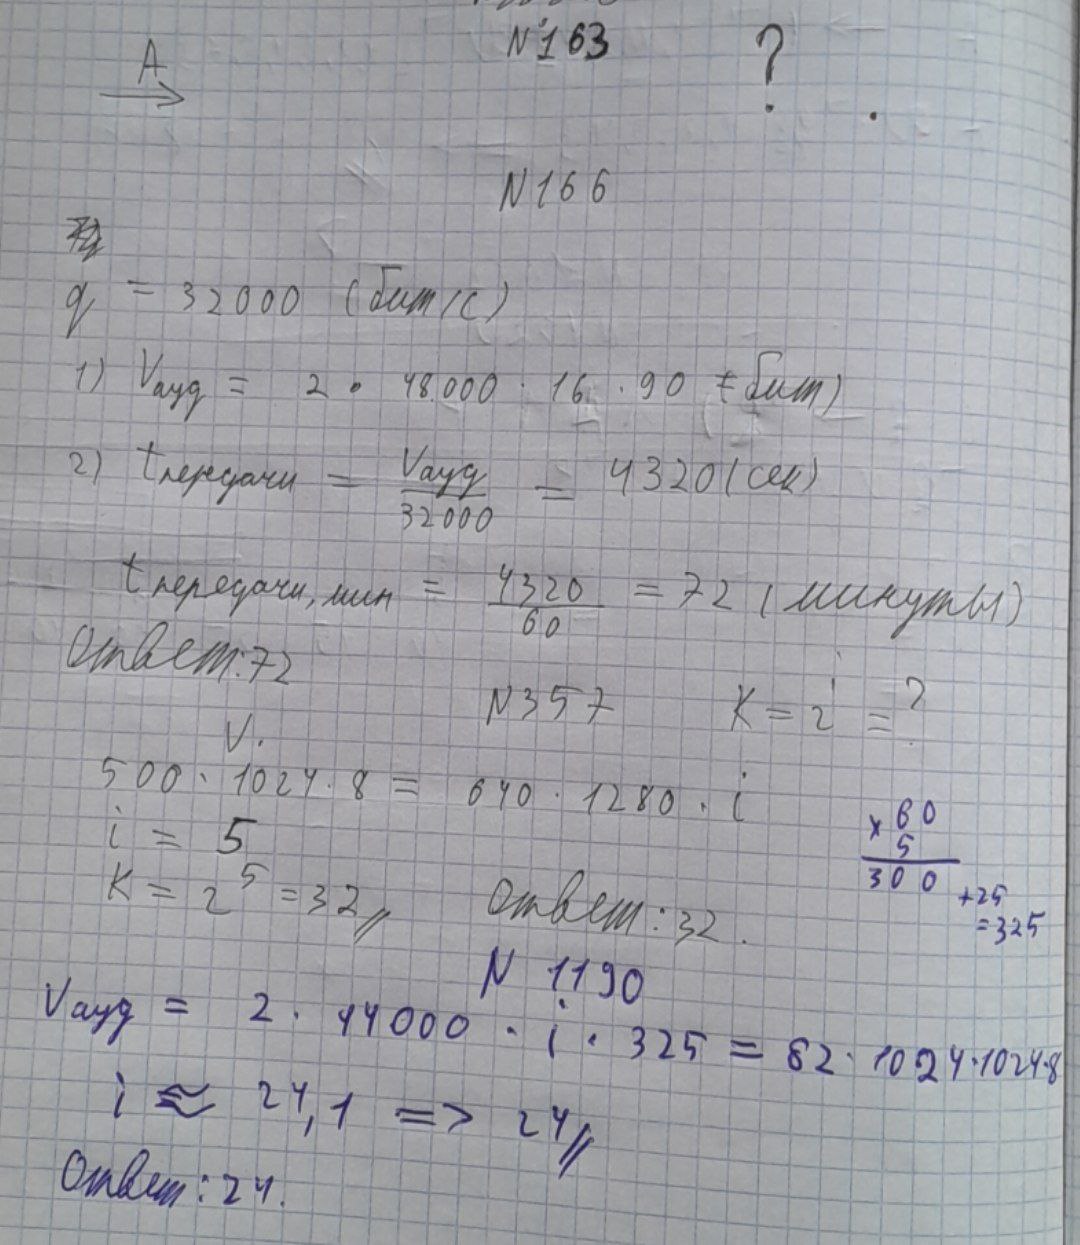 N163 ?
A
N166
q = 32000 (бит/с)
1) Vауд = 2 · 48000 · 16 · 90 (бит)
2) tпередачи = Vауд / 32000 = 4320 (сек)
tпередачи, мин = 4320 / 60 = 72 (минуты)
Ответ: 72
N357 K = 2^i = ?
V.
500 · 1024 · 8 = 640 · 1280 · i
i = 5
K = 2^5 = 32 Ответ: 32.
× 60
5
300 +25
=325
N 1190
Vауд = 2 · 44000 · i · 325 = 82 · 1024 · 1024 · 8
i ≈ 24,1 => 24
Ответ: 24.